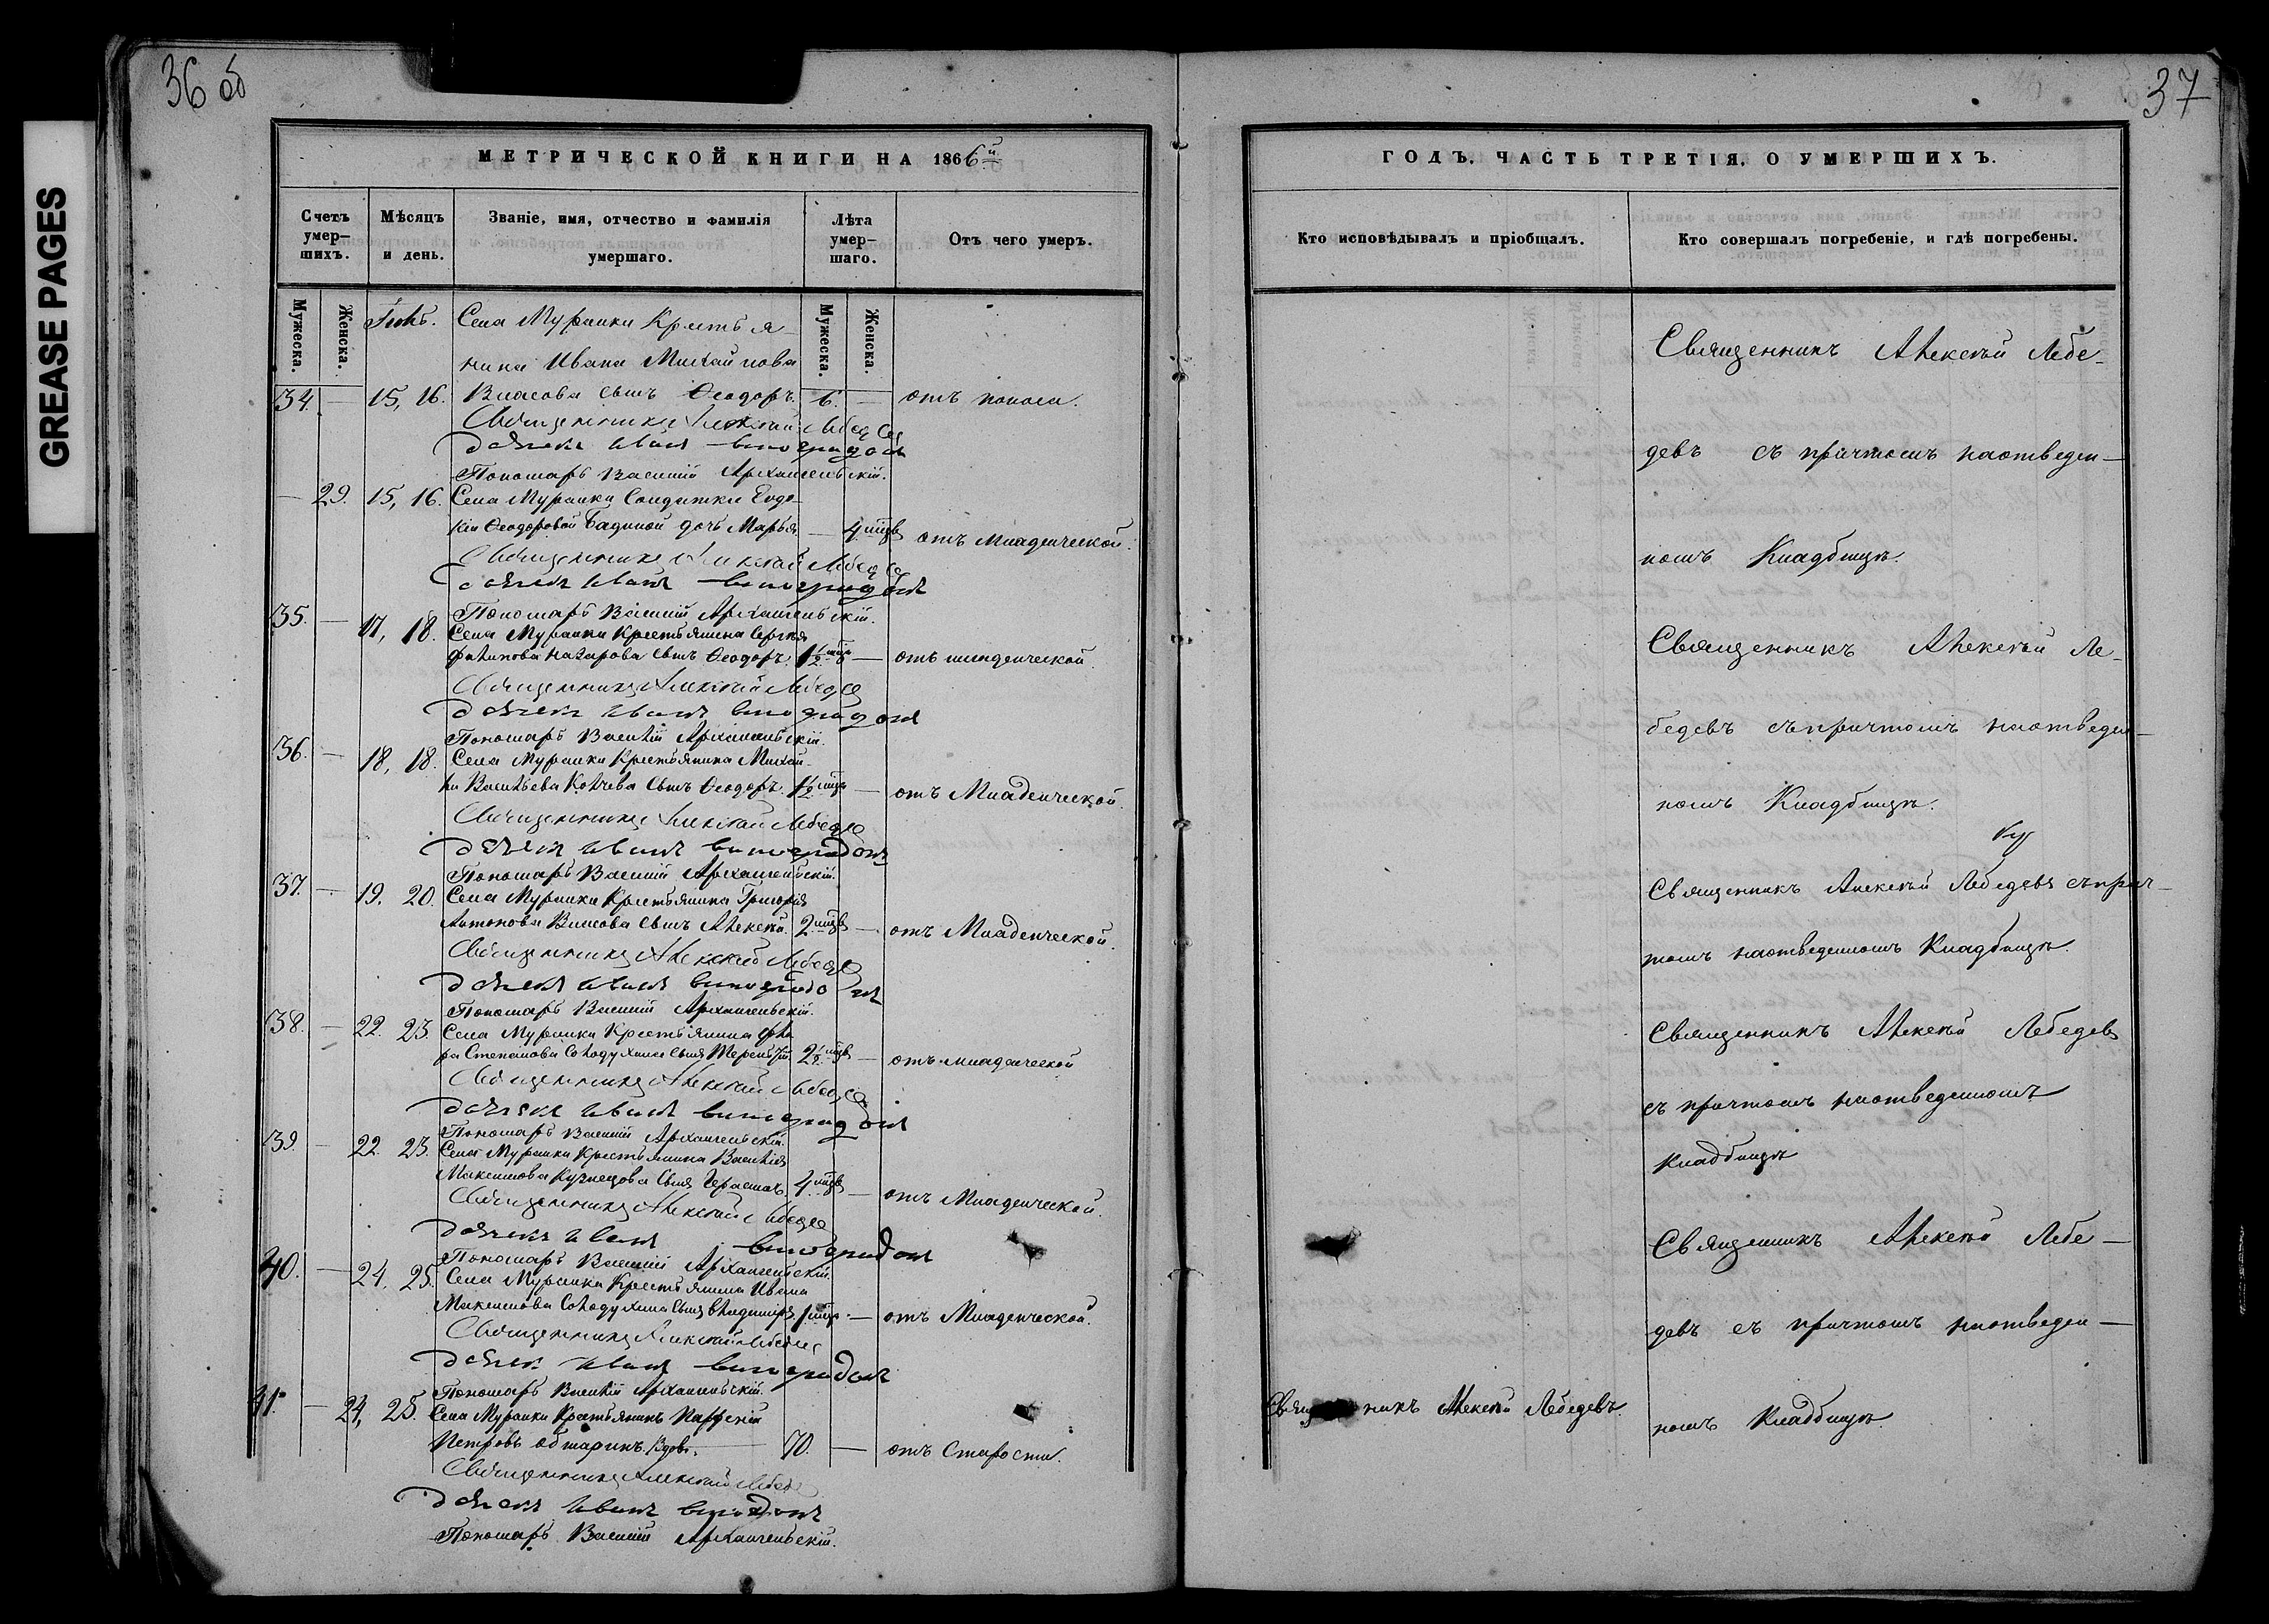 GREASE PAGES
36 об
МЕТРИЧЕСКОЙ КНИГИ НА 1866й
Счетъ умер-
шихъ.
Мѣсяцъ
и день.
Званіе, имя, отчество и фамилія
умершаго.
Лѣта
умер-
шаго.
Отъ чего умеръ.
Мужеска.
Женска.
Мужеска.
Женска.
Іюнь. Села Муранки Крестья-
нина Ивана Михайлова
34. — 15, 16. Власова сынъ Ѳеодоръ. 6. — отъ поноса.
Священникъ Алексѣй Лебедев
Дьячекъ Иванъ Виноградовъ
Пономарь Василій Архангельскій.
— 29. 15, 16. Села Муранки Солдатки Евдо-
кіи Ѳеодоровой дочь Марья — 4 мцвъ отъ младенческой.
Священникъ Алексѣй Лебедев
Дьячекъ Иванъ Виноградовъ
Пономарь Василій Архангельскій.
35. — 17, 18. Села Муранки Крестьянина Сергѣя
Филипова Назарова сынъ Ѳеодоръ. 1½ мцъ — отъ младенческой.
Священникъ Алексѣй Лебедев
Дьячекъ Иванъ Виноградовъ
Пономарь Василій Архангельскій.
36. — 18, 18. Села Муранки Крестьянина Михай-
ла Васильева сынъ Ѳеодоръ. 1½ мцъ — отъ Младенческой.
Священникъ Алексѣй Лебедев
Дьячекъ Иванъ Виноградовъ
Пономарь Василій Архангельскій.
37. — 19. 20. Села Муранки Крестьянина Григорія
Антонова Власова сынъ Алексѣй. 2 мцвъ — отъ Младенческой.
Священникъ Алексѣй Лебедев
Дьячекъ Иванъ Виноградовъ
Пономарь Василій Архангельскій.
38. — 22. 23. Села Муранки Крестьянина
Степанова Солодухина сынъ Терентій 2½ мцвъ — отъ младенческой
Священникъ Алексѣй Лебедев
Дьячекъ Иванъ Виноградовъ
Пономарь Василій Архангельскій.
39. — 22. 23. Села Муранки Крестьянина Василія
Максимова Кузнецова сынъ Герасимъ 4 мцвъ — отъ Младенческой.
Священникъ Алексѣй Лебедев
Дьячекъ Иванъ Виноградовъ
Пономарь Василій Архангельскій.
40. — 24. 25. Села Муранки Крестьянина Ивана
Максимова Солодухина сынъ Владиміръ 1 мцъ — отъ Младенческой.
Священникъ Алексѣй Лебедев
Дьячекъ Иванъ Виноградовъ
Пономарь Василій Архангельскій.
41. — 24, 25. Села Муранки Крестьянинъ
Петровъ Вдов. 70. — отъ Старости.
Священникъ Алексѣй Лебедев
Дьячекъ Иванъ Виноградовъ
Пономарь Василій Архангельскій.
37
ГОДЪ. ЧАСТЬ ТРЕТІЯ, О УМЕРШИХЪ.
Кто исповѣдывалъ и пріобщалъ.
Кто совершалъ погребеніе, и гдѣ погребены.
Священникъ Алексѣй Лебе-
девъ съ причтомъ на отведен-
номъ Кладбищѣ.
Священникъ Алексѣй Ле-
бедевъ съ причтомъ на отведен-
номъ Кладбищѣ.
Священникъ Алексѣй Лебедевъ съ прич-
томъ на отведенномъ Кладбищѣ.
Священникъ Алексѣй Лебедевъ
съ причтомъ на отведенномъ
Кладбищѣ
Священникъ Алексѣй Лебе-
девъ съ причтомъ на отведен-
Священникъ Алексѣй Лебедевъ.
номъ Кладбищѣ.